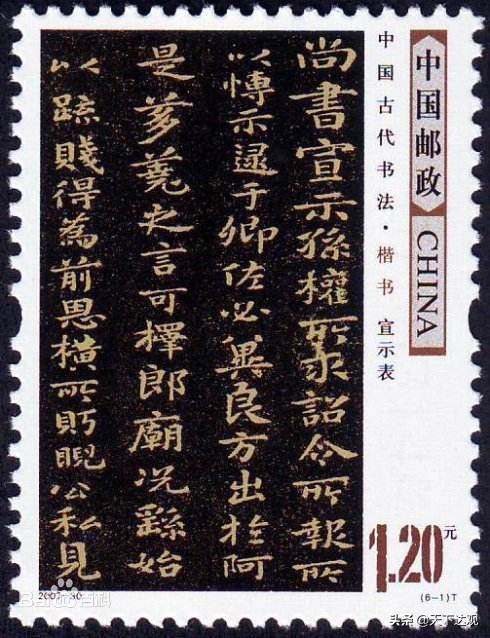 中国邮政 CHINA
中国古代书法·楷书 宣示表
尚書宣示孫權所求詔令所報所
以博示逮于卿佐必冀良方出於阿
是芻蕘之言可擇郎廟況繇始
以疏賤得為前恩橫所眄睨公私見
1.20元
2007-30
(6-1)T
Bai百科
头条 @天下达观